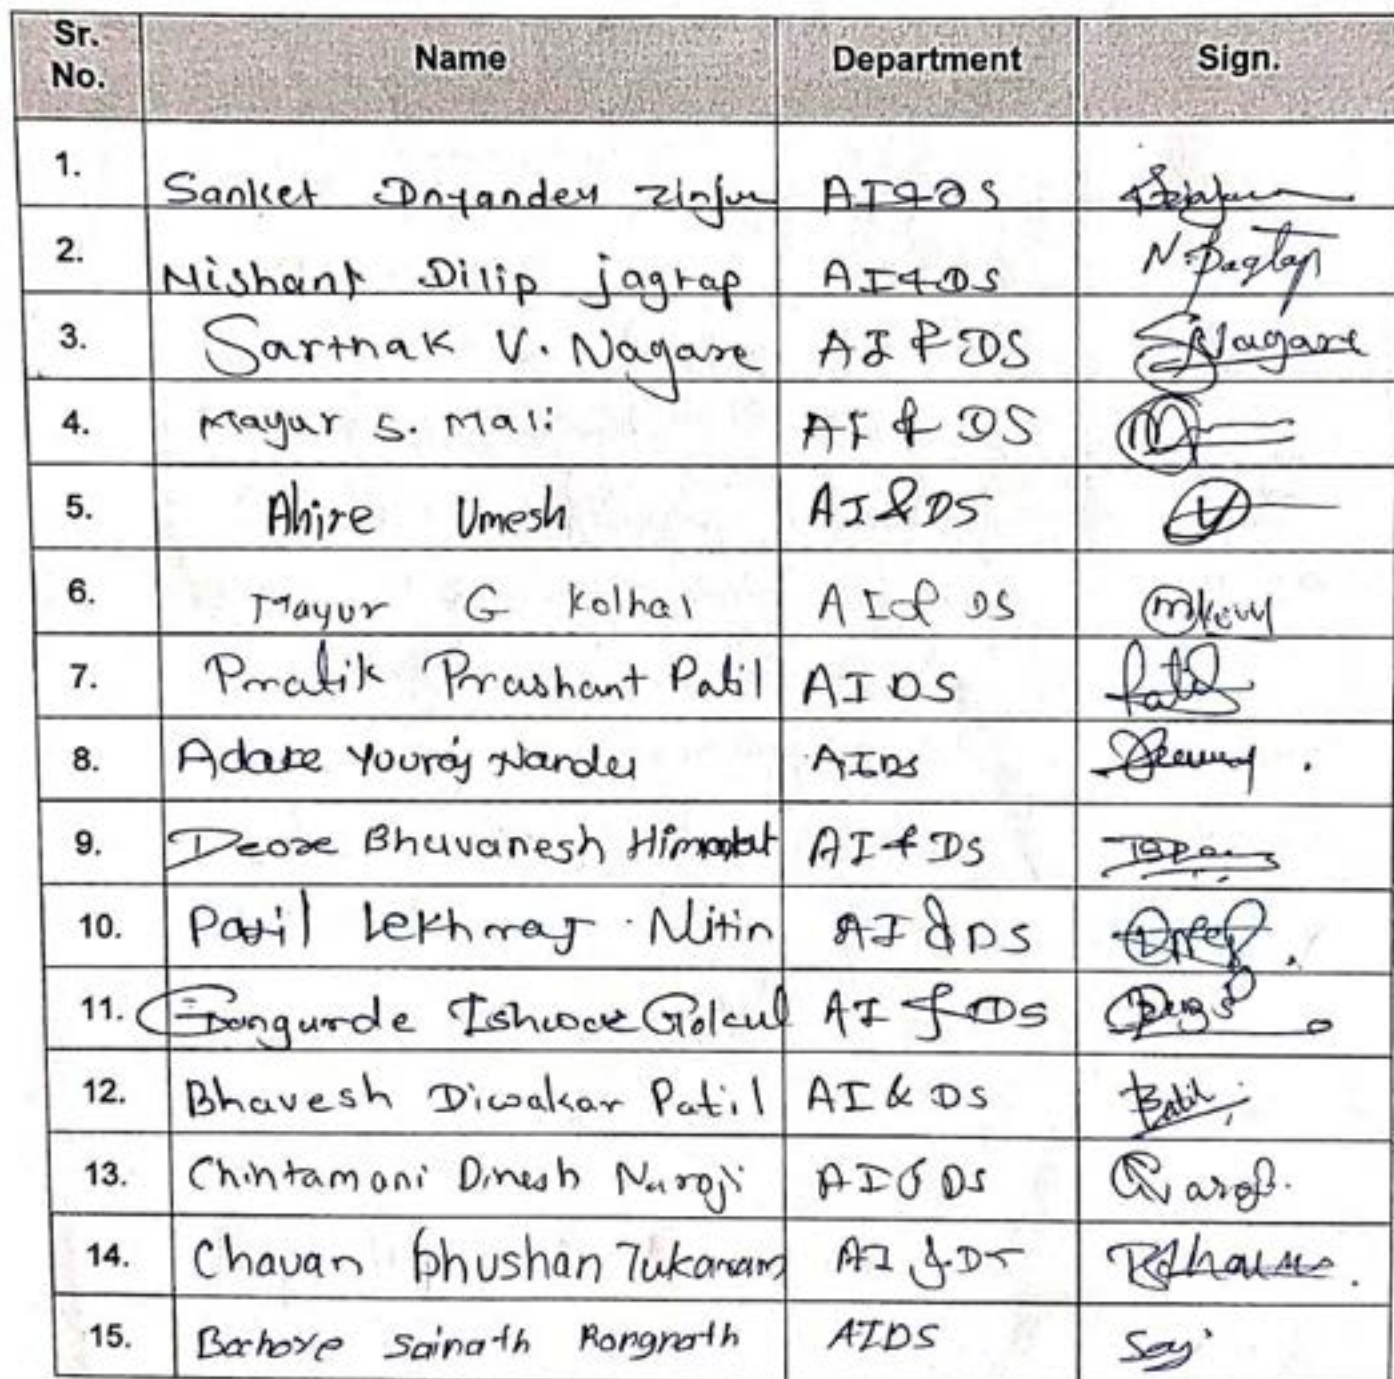 Sr. No. Name Department Sign.
1. Sanket Dnyandev Zinjur AI&DS
2. Nishant Dilip jagtap AI&DS N. Jagtap
3. Sarthak V. Nagare AI & DS SNagare
4. Mayur S. Mali AI & DS
5. Ahire Umesh AI&DS
6. Mayur G Kolhal AI & DS
7. Pratik Prashant Patil AI DS Patil
8. Yuvraj AIDS
9. Deore Bhuvanesh Himmat AI & DS
10. Patil Lekhraj Nitin AI & DS
11. Gangurde Ishwar Gokul AI & DS
12. Bhavesh Diwakar Patil AI & DS Patil
13. Chintamani Dinesh Naroji AI & DS
14. Chavan Bhushan Tukaram AI & DS
15. Sainath Rangnath AIDS